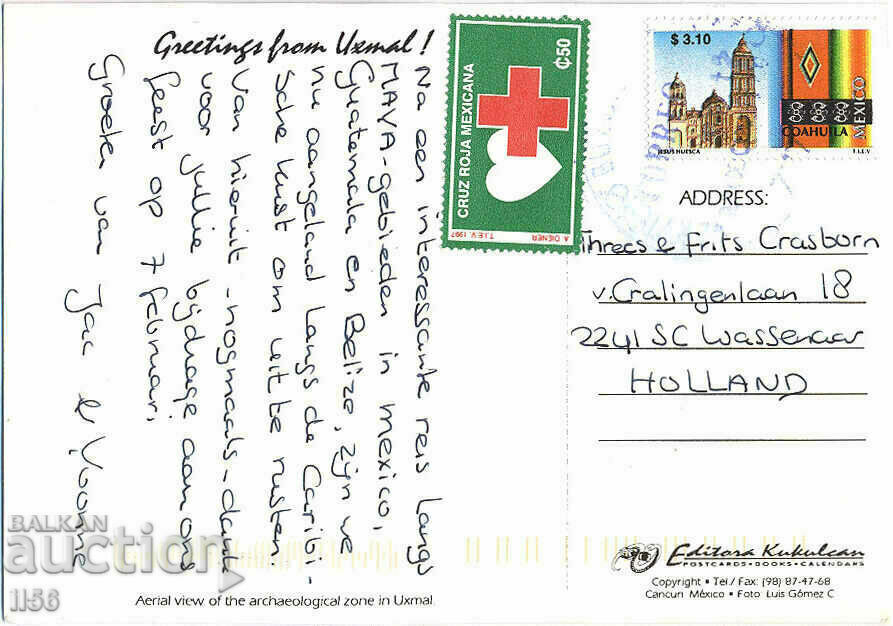 Greetings from Uxmal !
Na een interessante reis langs
MAYA-gebieden in Mexico,
Guatemala en Belize, zijn we
nu aangeland langs de Caribi-
sche kust om uit te rusten.
Van hieruit - nogmaals - dank
voor jullie bijdrage aan ons
feest op 7 februari.
Groeten van Jac & Yvonne
CRUZ ROJA MEXICANA
¢50
A. DIENER
T.I.E.V. 1997
$ 3.10
COAHUILA
MEXICO
JESUS HUESCA
T.I.E.V.
ADDRESS:
Threes & Frits Crasborn
v. Cralingenlaan 18
2241 SC Wassenaar
HOLLAND
Editora Kukulcan
POSTCARDS • BOOKS • CALENDARS
Copyright • Tel / Fax: (98) 87-47-68
Cancún México • Foto Luis Gómez C
Aerial view of the archaeological zone in Uxmal.
BALKAN
auction
1156